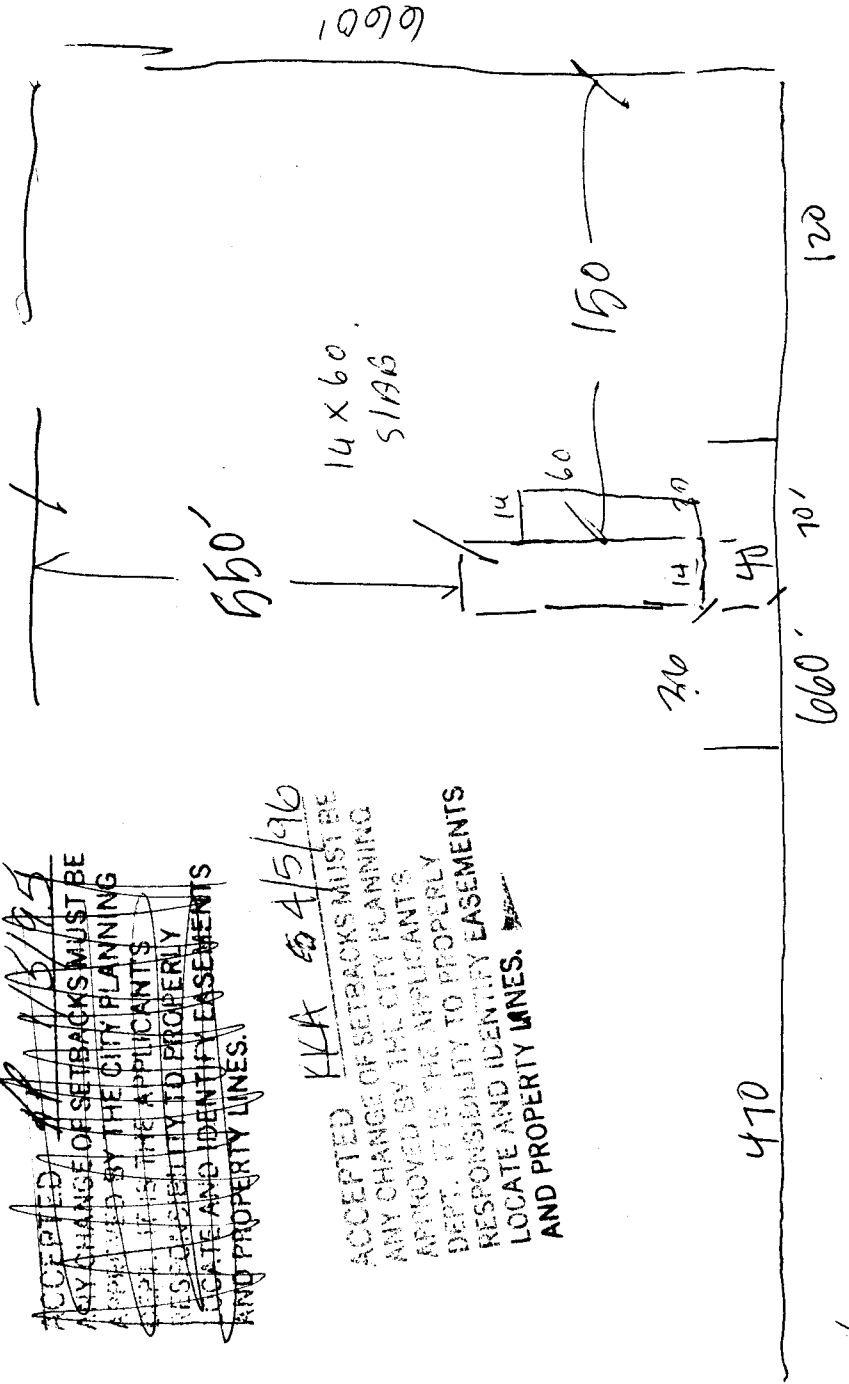 ACCEPTED 1/5/95
ANY CHANGE OF SETBACKS MUST BE
APPROVED BY THE CITY PLANNING
DEPT. IT IS THE APPLICANTS
RESPONSIBILITY TO PROPERLY
LOCATE AND IDENTIFY EASEMENTS
AND PROPERTY LINES.
ACCEPTED KKA 4/5/96
ANY CHANGE OF SETBACKS MUST BE
APPROVED BY THE CITY PLANNING
DEPT. IT IS THE APPLICANTS
RESPONSIBILITY TO PROPERLY
LOCATE AND IDENTIFY EASEMENTS
AND PROPERTY LINES.
550'
14 x 60
SlAB
660'
14
60
150
30
14
40'
26
70'
120
660'
470